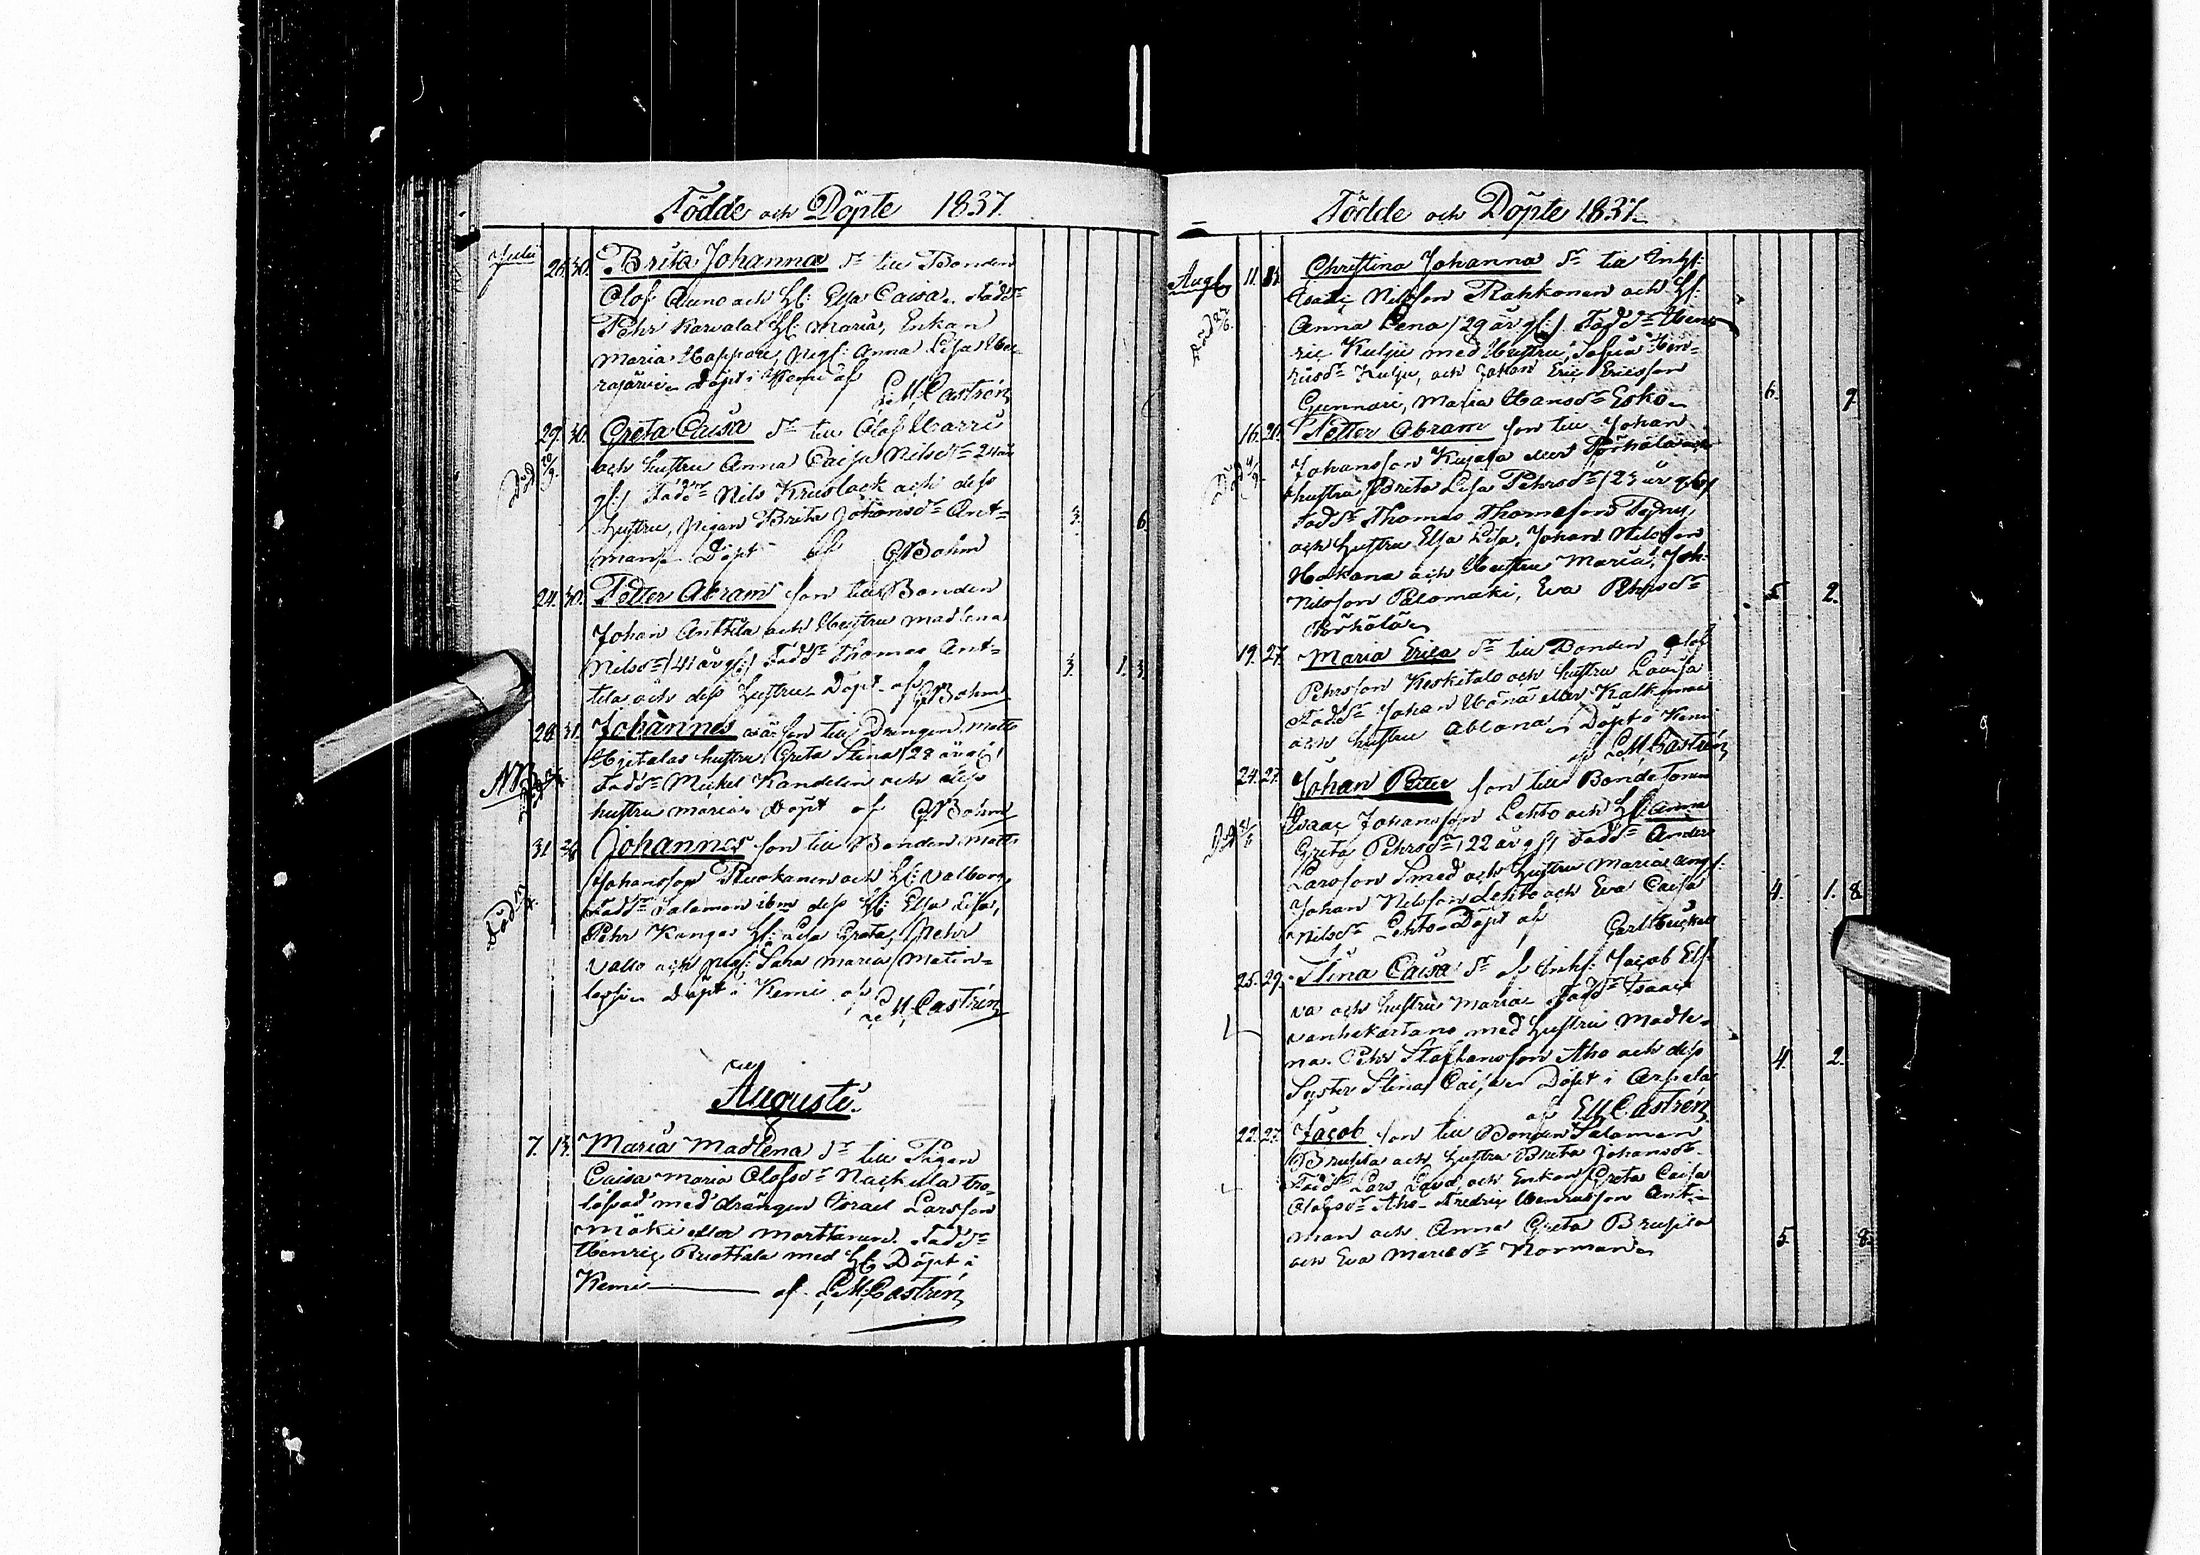 Födde och Döpte 1837.
Julii 26. 30. Brita Johanna dr till Bonden
Olof Auno och H: Elsa Caisa. Faddr
Pehr Karvala H: Maria, Enkan
Maria, Pig: Anna Lisa
Döpt i Kemi af
L.M. Castrén
29. 30. Greta Caisa dr till Olof Harri
och hustru Anna Caisa Nilsdr 24 år
gl: Faddr Nils Kruslock och dess
hustru, pigan Brita Johansdr Ant=
man. Döpt af G Bohm
3. 6.
24. 30. Petter Abram son till Bonden
Johan Anttila och Hustru Madlena
Nilsdr /41 år gl:/ Faddr Thomas Ant=
tila och dess hustru. Döpt af G Bohm
3. 1. 3.
28. 31. Johannes son till Drängen Matts
hustru Greta Stina /28 år gl:/
Faddr Mickel Kandelin och dess
hustru Maria. Döpt af G Bohm
NB
31. Johannes son till Bonden Matts
Johansson Ruokanen och H: Valborg
Faddr Salomon ibm dess H: Elsa Lisa,
Pehr Kangas H: Lisa Greta, Pehr
Vallo och pig: Sara Maria Matin=
Döpt i Kemi af
L M Castrén
Augusti.
7. 13. Maria Madlena dr till Pigan
Caisa Maria Olofsdr Nackula tro=
lofvad med drängen Israel Larsson
Mäki eller Marttanen. Faddr
Henric Ruottala med H: Döpt i
Kemi af L M Castrén
Födde och Döpte 1837
Aug. 11. Christina Johanna dr till Inh:
Isaac Nilsson Rahkonen och H:
Anna Lena /29 år gl:/ Faddr Hen=
ric Kulju med Hustru, Sofia Hen=
ricsdr Kulju, och Johan Eric Ericsson
Gunnari, Maria Hansdr Esko
6. 9.
16. 20. Petter Abram son till Johan
Johansson Kujala eller Pörhölä och
hustru Brita Lisa Pehrsdr /23 år gl:/
Faddr Thomas Thomasson
och hustru Elsa Lisa, Johan Nilsson
Hakana och Hustru Maria, Joh:
Nilsson Palomäki, Eva Pehrsdr
Pörhölä
5. 2.
19. 27. Maria Erica dr till Bonden Olof
Pehrsson Keskitalo och hustru Lovisa
Faddr Johan Hänä eller Kalkinen
och hustru Ablona Döpt i Kemi
af L M Castrén
24. 27. Johan Petter son till Bonde
Isaac Johansson Lehto och H: Anna
Greta Pehrsdr /22 år gl:/ Faddr Anders
Larsson Smed och hustru Maria
Johan Nilsson Lehto och Eva Caisa
Nilsdr Lehto. Döpt af Carl Heickell
4. 1. 8
25. 29. Stina Caisa dr af Inh: Jacob Elf=
va och hustru Maria Faddr Isaac
Vanhakartano med hustru Madle=
na. Pehr Staffansson Aho och dess
Syster Stina Caisa. Döpt i Arpela
af E M Castrén
4. 2.
22. 27. Jacob son till Bonden Salomon
Brusila och hustru Brita Johansdr
Faddr Lars Lava, och Enkan Greta Caisa
Olofsdr Aho Fredric Henricsson Ant=
man och Anna Greta Brusila
och Eva Mariasdr Norman
5. 8.